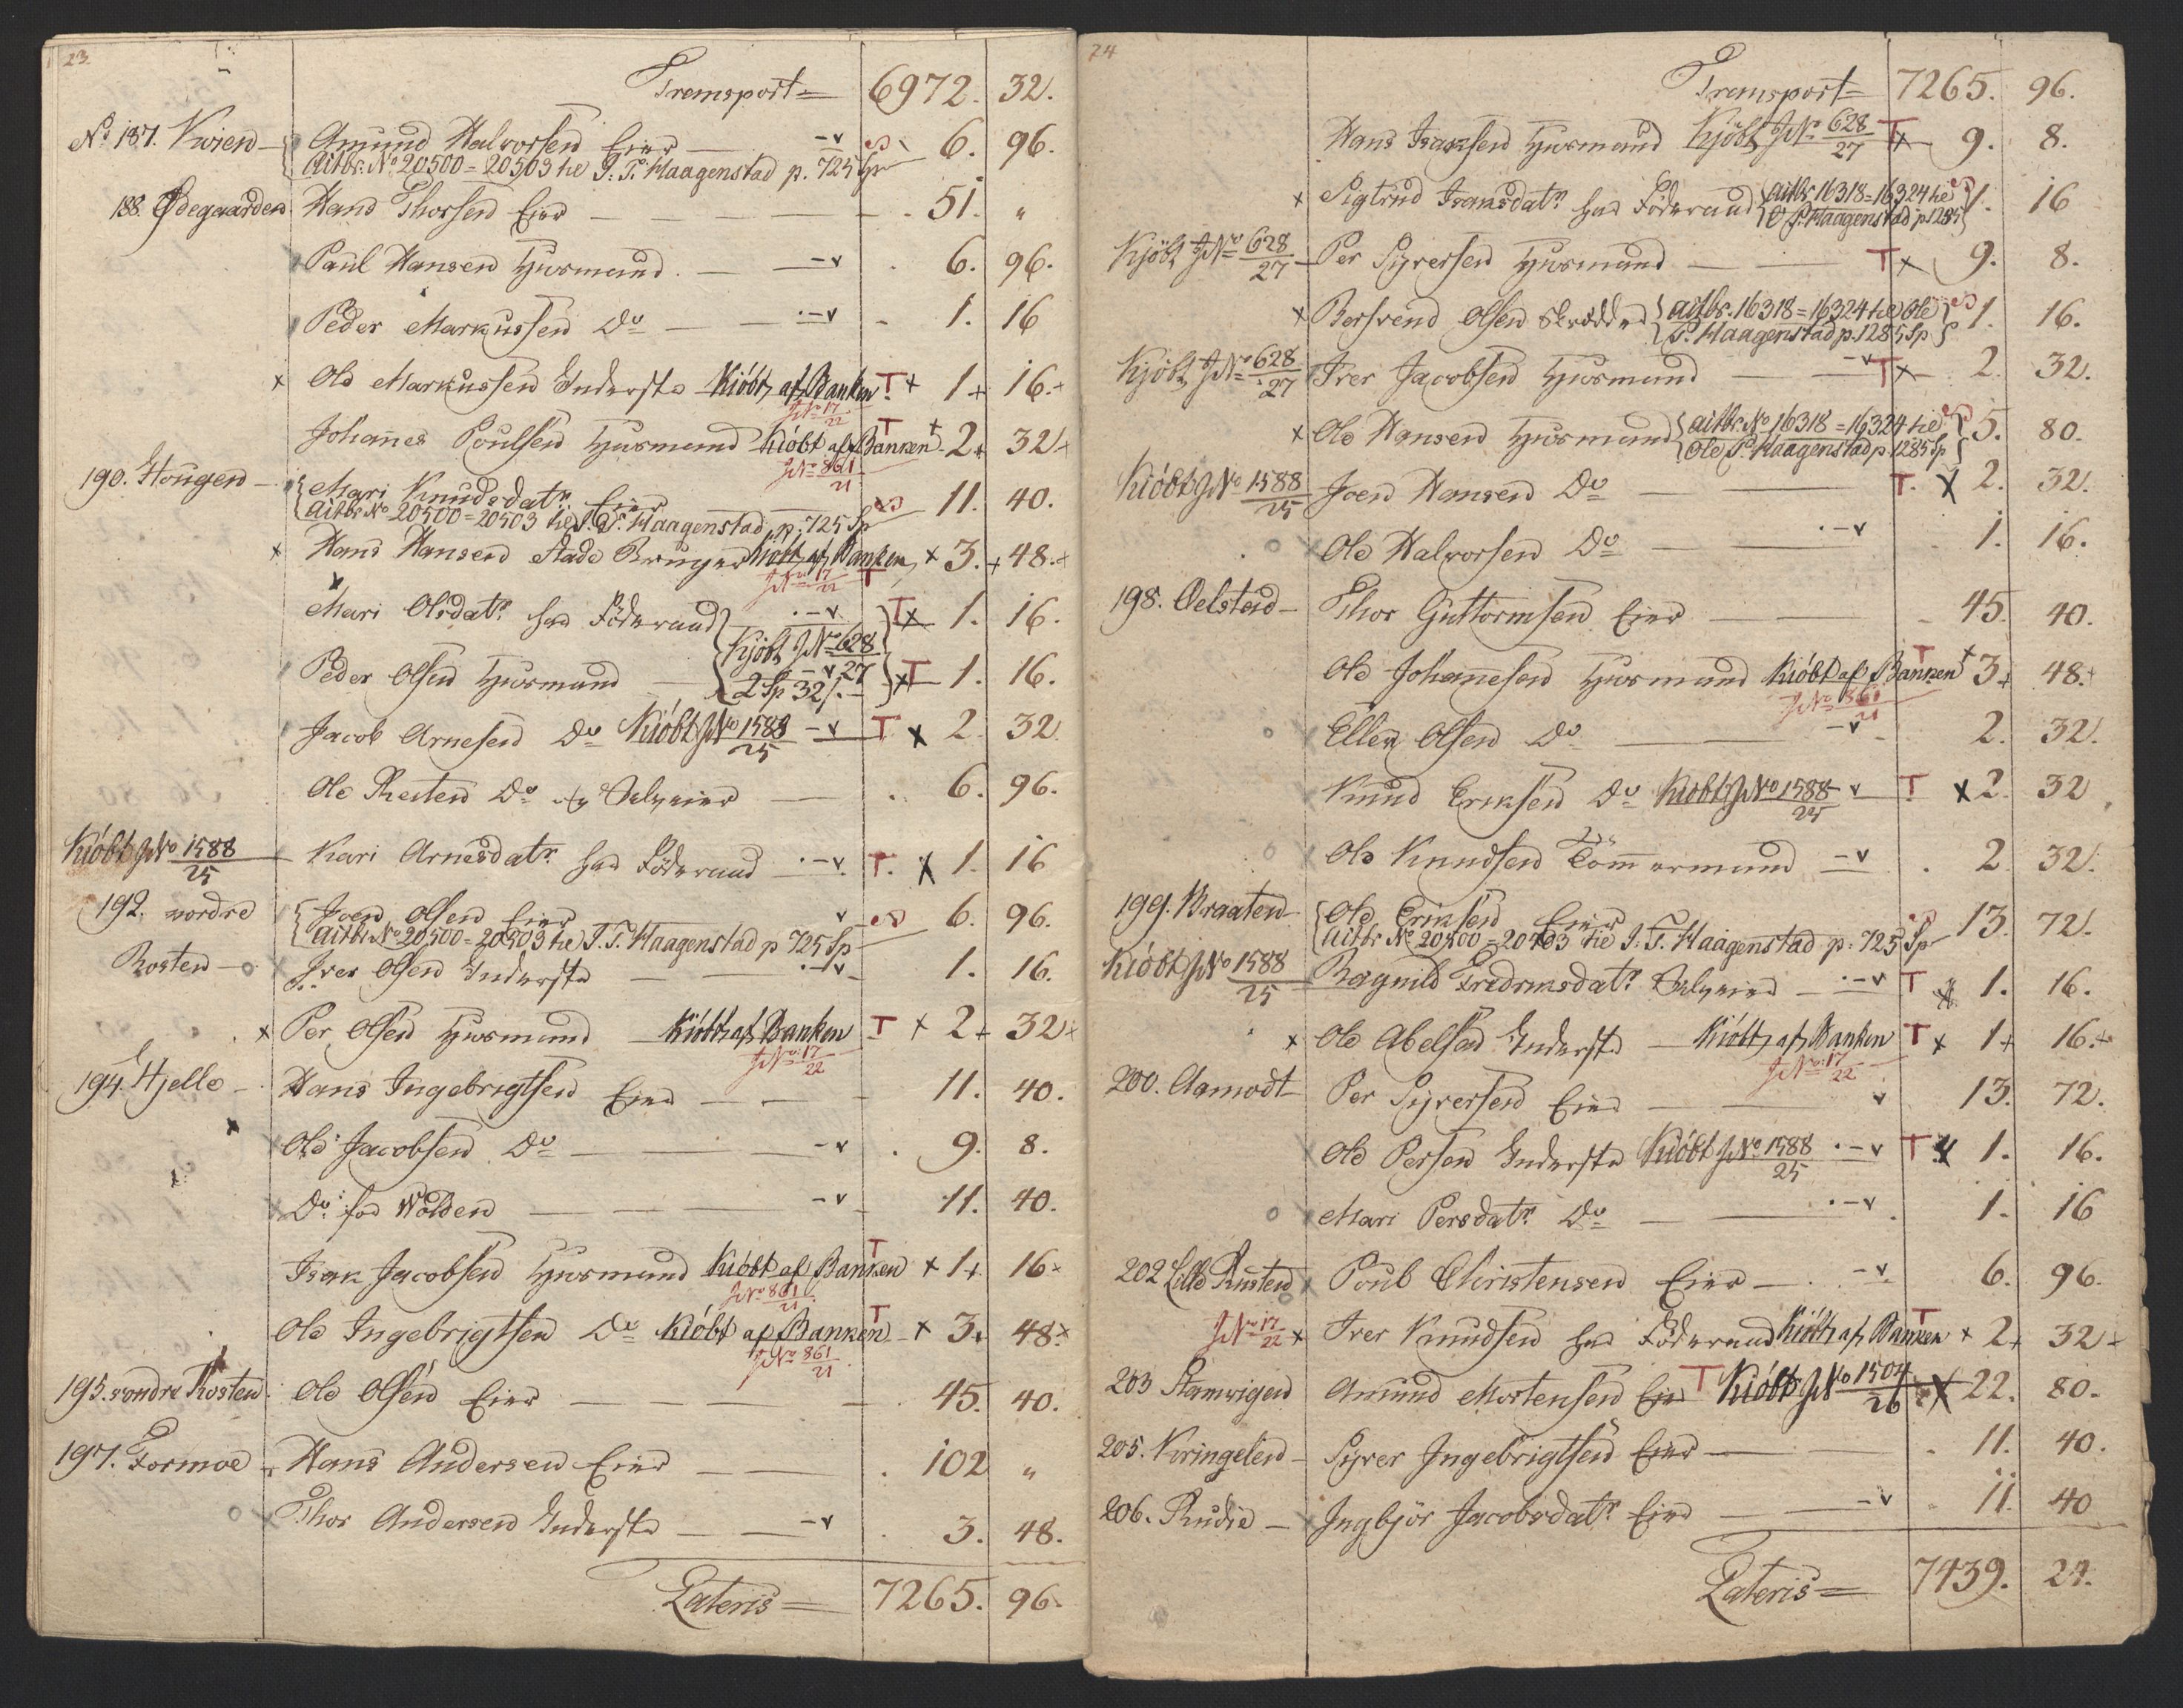 23.
Transport = 6972. 32.
No 187. Kvien – Amund Halvorsen Eier – v 6. 96.
Actbr. No 20500 = 20503 he J. T. Haagenstad p. 725 Sp
188. Ødegaarden Hans Thorsen Eier – 51. "
Paul Hansen Huusmand – v 6. 96.
Peder Markussen Do – v 1. 16
x Ole Markussen Inderste Kiöbt af Banken T x 1+ 16.+
JNo 17/22
Johannes Poulsen Huusmand Kiöbt af Banken T + 2+ 32+
JNo 861/21
190. Hougen – Mari Knudsdatr Eier 11. 40.
Actbr No 20500 = 20503 he J. T. Haagenstad p. 725 Sp
x Hans Hansen Stade Bruger Kiöbt af Banken T x 3.+ 48.+
JNo 17/22
Mari Olsdatr har Föderaad – v T x 1. 16.
Kjöbt JNo 628/27
Peder Olsen Huusmand – v 2 Sp 32 /. T x 1. 16.
Jacob Arnesen Do Kiöbt JNo 1588/25 – v T x 2. 32
Ole Resten Do og Selveier 6. 96.
Kiöbt JNo 1588/25 Kari Arnesdatr har Föderaad – v. T. x 1. 16
192. nordre Joen Olsen Eier v 6. 96.
Actbr No 20500 = 20503 he J. T. Haagenstad p 725 Sp
Rosten – o Iver Olsen Inderste – v 1. 16.
x Per Olsen Huusmand Kiöbt af Banken T x 2+ 32+
JNo 17/22
194. Hjelle – Hans Ingebrigtsen Eier – 11. 40.
Ole Jacobsen Do – v 9. 8.
Do for Wolden – v 11. 40.
Isak Jacobsen Huusmand Kiöbt af Banken T x 1+ 16+
JNo 861/21
Ole Ingebrigtsen Do Kiöbt af Banken T x 3+ 48+
JNo 861/21
195. søndre Rosten Ole Olsen Eier – 45. 40.
197. Formoe – Hans Andersen Eier – 102 "
o Thor Andersen Inderste – v 3. 48.
Lateris = 7265. 96.
24
Transport = 7265. 96.
Hans Isaksen Huusmand Kjöbt JNo 628/27 T x 9. 8.
x Sigtrud Isaksdatr har Föderaad Actbr. 16318 = 16324 he 1. 16
O P. Haagenstad p 1285
Kjöbt JNo 628/27 Per Syversen Huusmand – T x 9. 8.
x Bersvend Olsen Skrædder Actbr. 16318 = 16324 he Ole 1. 16.
P. Haagenstad p. 1285 Sp
Kjöbt JNo 628/27 Iver Jacobsen Huusmand – v T x 2. 32.
x Ole Hansen Huusmand Actbr No 16318 = 16324 he 5. 80.
Ole P. Haagenstad p. 1285 Sp
Kiöbt JNo 1588/25 Joen Hansen Do – T. x 2. 32.
o Ole Halvorsen Do – v 1. 16.
198. Oelstad – Thor Guttormsen Eier – 45. 40.
Ole Johannesen Huusmand Kiöbt af Banken T + 3+ 48.+
JNo 861/21
o Ellen Olsen Do – v 2. 32.
Knud Eriksen Do Kiöbt JNo 1588/25 v T x 2. 32
o Ole Knudsen Tømmermand – v 2 32.
199. Braaten – Ole Eriksen Eier 13. 72.
Actbr No 20500 = 20503 he J. T. Haagenstad p. 725 Sp
Kiöbt JNo 1588/25 Ragnild Fredriksdatr Selveier – v T x 1. 16.
x Ole Abelsen Inderste – Kiöbt af Banken T x 1+ 16.+
JNo 17/22
200. Aamodt – Per Syversen Eier – v 13. 72.
Ole Persen Inderste Kiöbt JNo 1588/25 – v T x 1. 16.
o Mari Persdatr Do – v 1. 16
202 Lille Rusten Poul Christensen Eier – v 6. 96.
JNo 17/22 x Iver Knudsen har Föderaad Kiöbt af Banken T x 2+ 32+
203 Stamvigen Amund Mortensen Eier T Kiöbt JNo 1504/26 x 22. 80.
205. Kringelen – Syver Ingebrigtsen Eier – 11. 40.
206. Rudie – Ingbjör Jacobsdatr Eier – v 11. 40
Lateris = 7439. 24.